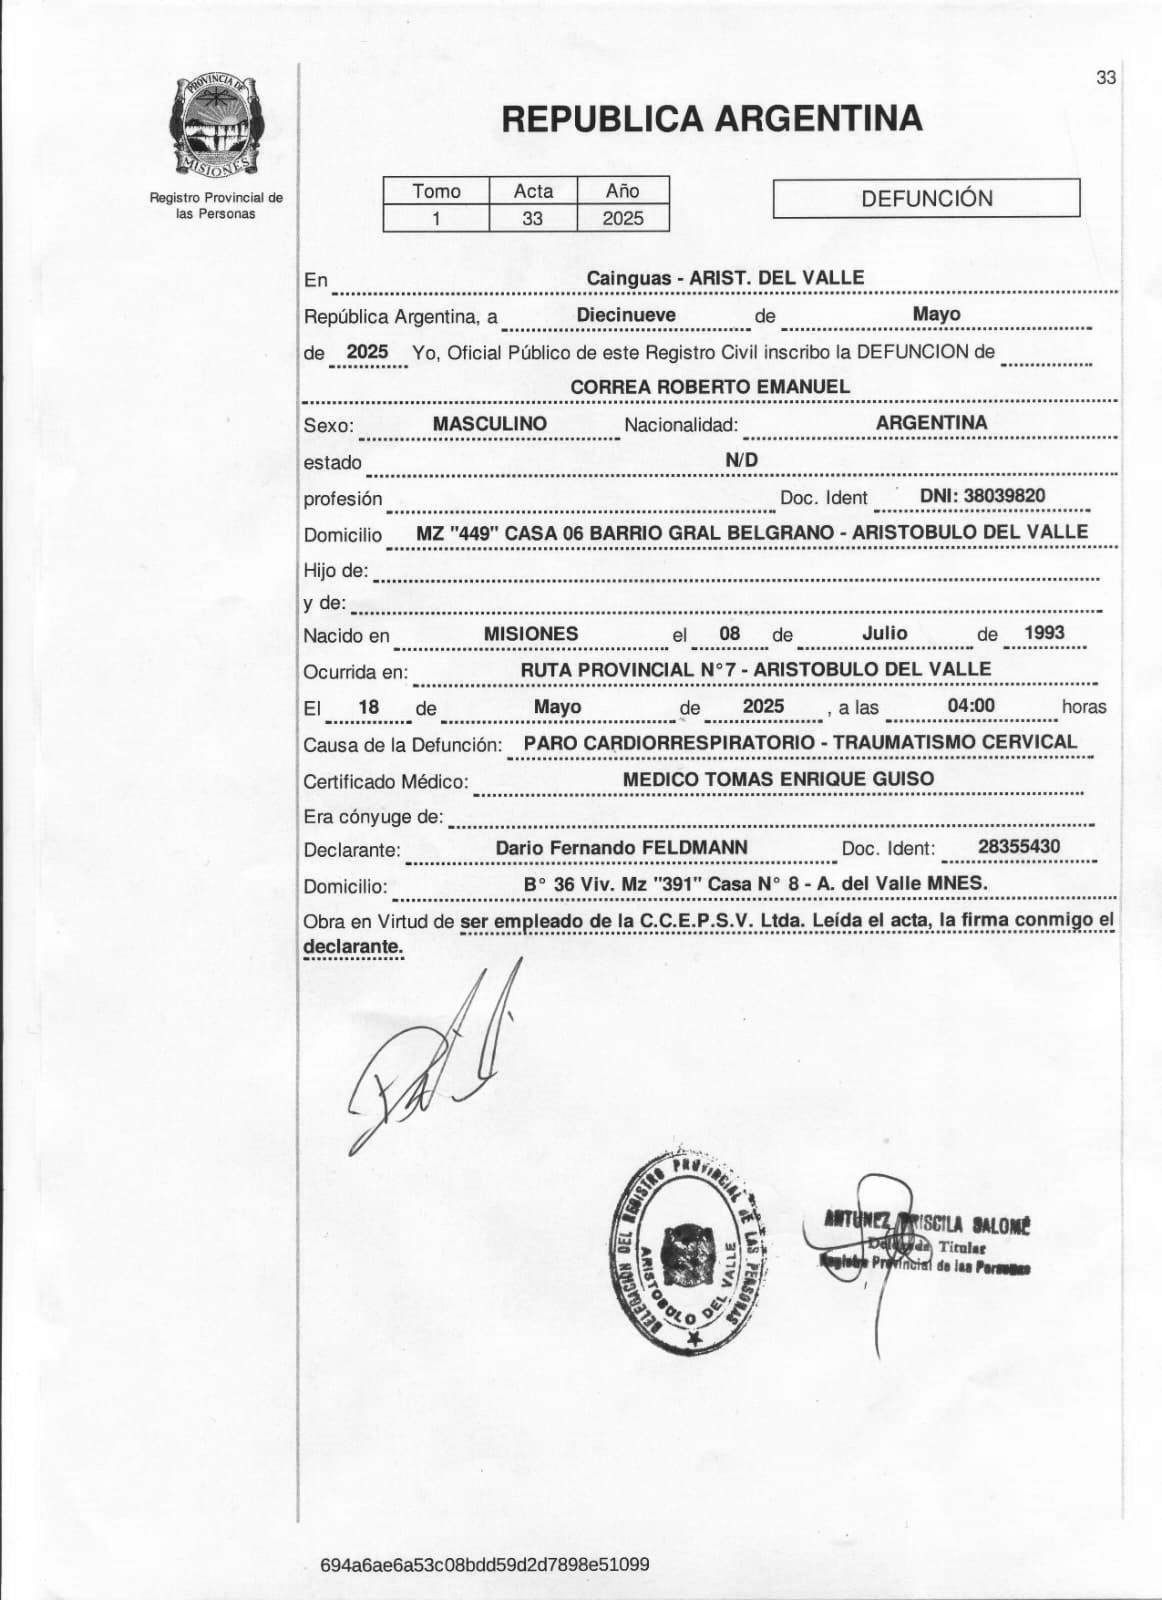 33
PROVINCIA DE
MISIONES
Registro Provincial de
las Personas
REPUBLICA ARGENTINA
Tomo Acta Año
1 33 2025
DEFUNCIÓN
En Cainguas - ARIST. DEL VALLE
República Argentina, a Diecinueve de Mayo
de 2025 Yo, Oficial Público de este Registro Civil inscribo la DEFUNCION de
CORREA ROBERTO EMANUEL
Sexo: MASCULINO Nacionalidad: ARGENTINA
estado N/D
profesión Doc. Ident DNI: 38039820
Domicilio MZ "449" CASA 06 BARRIO GRAL BELGRANO - ARISTOBULO DEL VALLE
Hijo de:
y de:
Nacido en MISIONES el 08 de Julio de 1993
Ocurrida en: RUTA PROVINCIAL N°7 - ARISTOBULO DEL VALLE
El 18 de Mayo de 2025 , a las 04:00 horas
Causa de la Defunción: PARO CARDIORRESPIRATORIO - TRAUMATISMO CERVICAL
Certificado Médico: MEDICO TOMAS ENRIQUE GUISO
Era cónyuge de:
Declarante: Dario Fernando FELDMANN Doc. Ident: 28355430
Domicilio: B° 36 Viv. Mz "391" Casa N° 8 - A. del Valle MNES.
Obra en Virtud de ser empleado de la C.C.E.P.S.V. Ltda. Leída el acta, la firma conmigo el
declarante.
DELEGACION DEL REGISTRO PROVINCIAL DE LAS PERSONAS
ARISTOBULO DEL VALLE
ANTUNEZ PRISCILA SALOMÉ
Delegada Titular
Registro Provincial de las Personas
694a6ae6a53c08bdd59d2d7898e51099